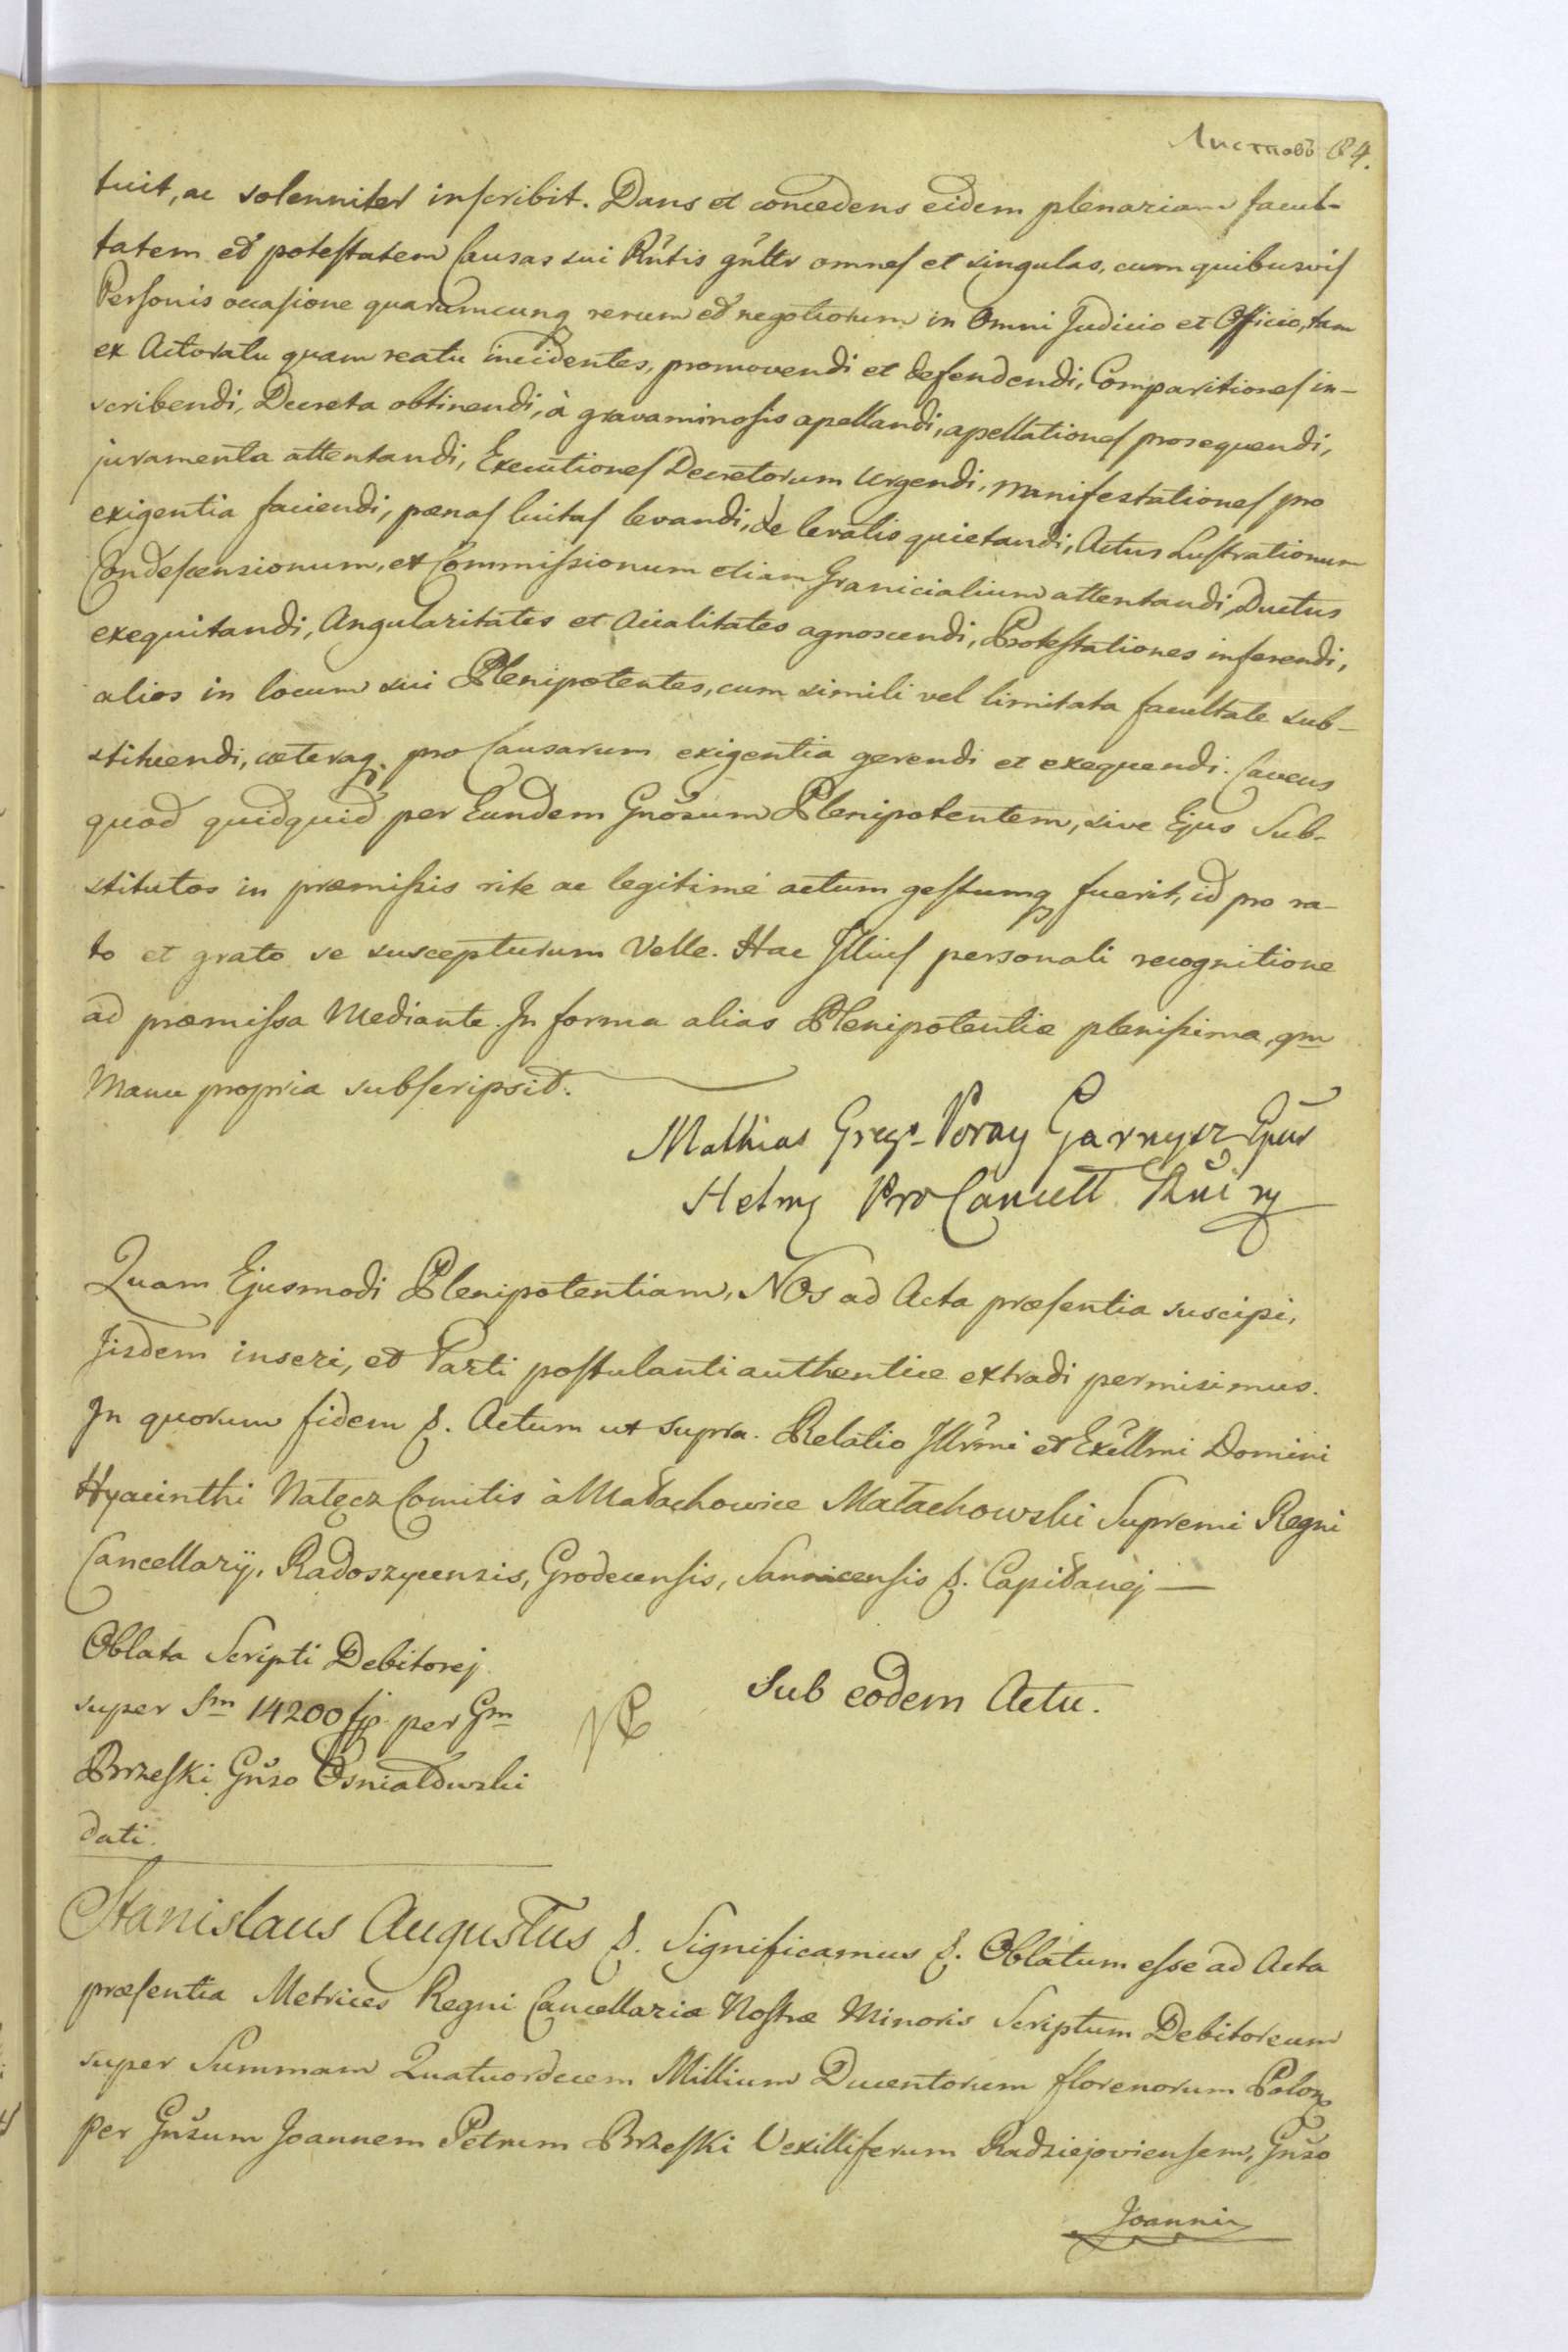 Листтовъ 84.
tuit, ac solenniter inscribit. Dans et concedens eidem plenariam facul-
tatem et potestatem Causas sui Rñtis gñlter omnes et singulas, cum quibusvis
Personis occasione quarumcunq rerum et negotiorum in Omni Judicio et Officio, tam
ex Actoratu quam reatu incidentes, promovendi et defendendi, Comparitiones in-
scribendi, Decreta obtinendi, à gravaminosis apellandi, apellationes prosequendi,
juramenta attentandi, Executiones Decretorum Urgendi, Manifestationes pro
exigentia faciendi, pœnas luitas levandi, de levatis quietandi, Actus Lustrationum
Condescensionum, et Commissionum etiam Granicialium attentandi, Ductus
exequitandi, Angularitates et Acialitates agnoscendi, Protestationes inferendi,
alios in locum sui Plenipotentes, cum simili vel limitata facultate sub-
stituendi, cæteraq. pro Causarum exigentia gerendi et exequendi. Cavens
quod quidquid per Eundem Gnõsum Plenipotentem, sive Ejus Sub-
stitutos in præmissis rite ac legitimé actum gestumq fuerit, id pro ra-
to et grato se suscepturum Velle. Hac Illius personali recognitione
ad præmissa Mediante. In forma alias Plenipotentiæ plenissima, qm
Manu propria subscripsit.
Mathias Greg. Poray Garnysz Epus
Helmz ProCancell Rni
Quam Ejusmodi Plenipotentiam, NOs ad Acta præsentia suscipi,
Iisdem inseri, et Parti postulanti authentice extradi permisimus.
In quorum fidem &. Actum ut supra. Relatio Illrm̃i et Excllm̃i Domini
Hyacinthi Nałęcz Comitis à Małachowice Małachowski Supremi Regni
Cancellarij, Radoszycensis, Grodecensis, Sannicensis &. Capitanej —
Oblata Scripti Debitorej
super Sm 14200 fp. per Gm
Brzeski Gñso Osniałowski
dati.
Sub eodem Actu.
Stanislaus Augustus &. Significamus &. Oblatum esse ad Acta
præsentia Metrices Regni Cancellariæ Nostræ Minoris Scriptum Debitoreum
super Summam Quatuordecem Millium Ducentorum florenorum Polon
per Gñsum Joannem Petrum Brzeski Vexilliferum Radziejoviensem, Gñso
Joanni